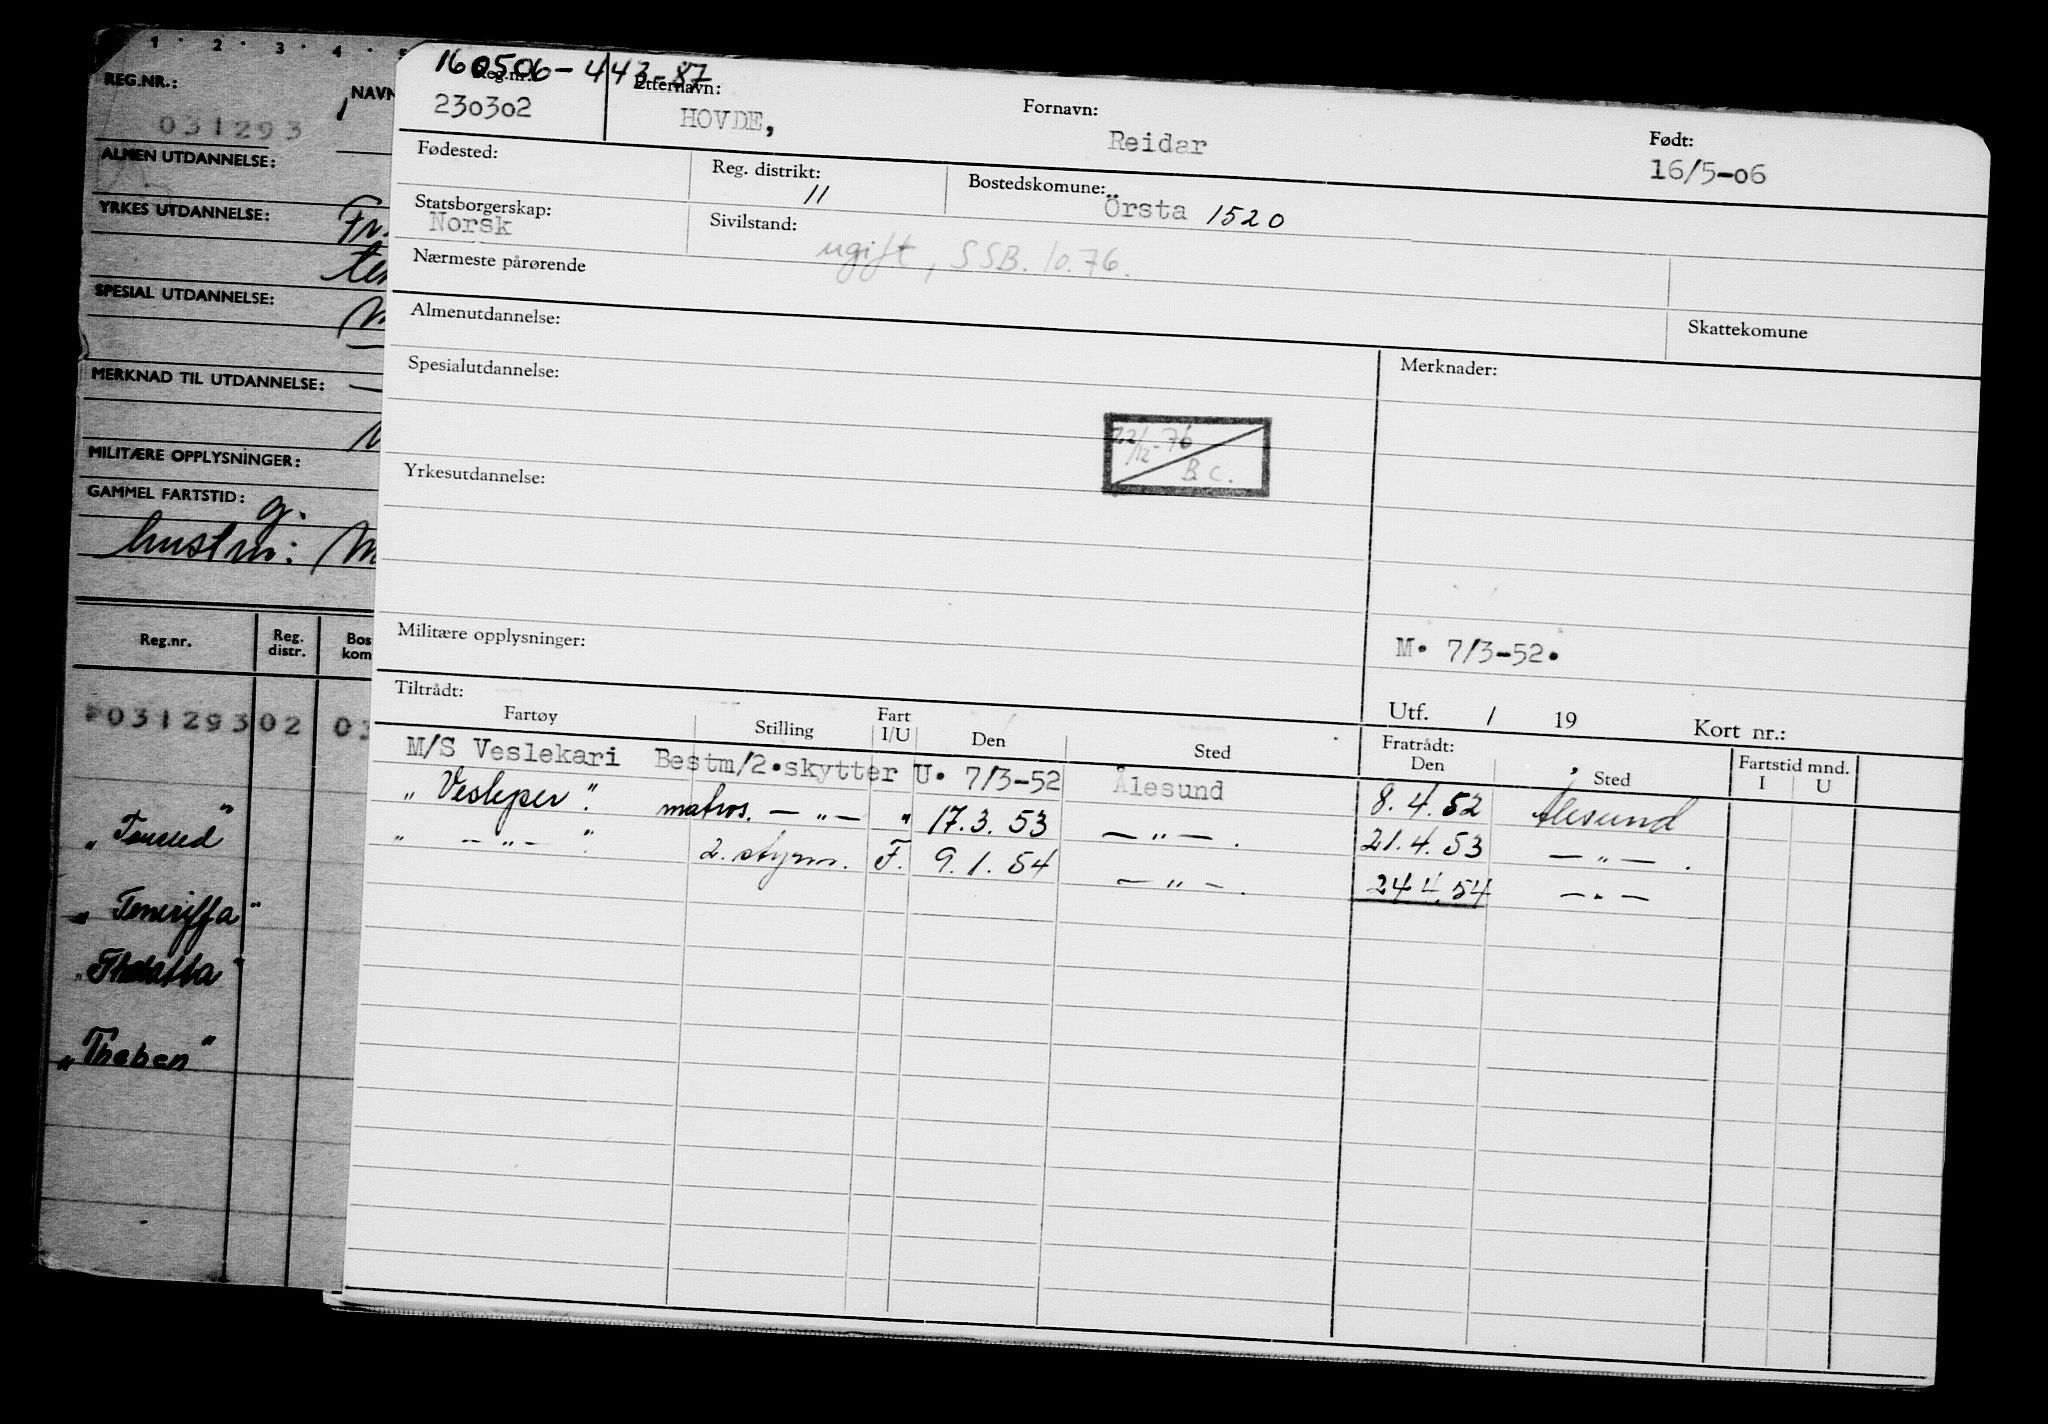 1 · 2 · 3 · 4 · 5
REG.NR.:
NAVN
031293
ALMEN UTDANNELSE:
YRKES UTDANNELSE:
Fr.
SPESIAL UTDANNELSE:
MERKNAD TIL UTDANNELSE:
MILITÆRE OPPLYSNINGER:
GAMMEL FARTSTID:
g.
hustru:
Reg.nr.
Reg. distr.
Bos kom
031293 02 03
"
"Teneriffa"
"Thalatta"
"Theben"
160506-443-87
Reg.nr.
Etternavn:
Fornavn:
Født:
230302
HOVDE,
Reidar
16/5-06
Fødested:
Reg. distrikt:
11
Bostedskomune:
Örsta 1520
Statsborgerskap:
Norsk
Sivilstand:
ugift, SSB. 10.76.
Nærmeste pårørende
Almenutdannelse:
Skattekomune
Spesialutdannelse:
Merknader:
22/12-76
B C.
Yrkesutdannelse:
Militære opplysninger:
M. 7/3-52.
Tiltrådt:
Utf. / 19 Kort nr.:
Fartøy
Stilling
Fart I/U
Den
Sted
Fratrådt: Den
Sted
Fartstid mnd.
I U
M/S Veslekari Bestm/2.skytter U. 7/3-52 Ålesund 8.4.52 Ålesund
" Vesleper". matros. — " — " 17.3.53 — " — . 21.4.53 — " — .
" — " — ". 2. styrm. F. 9.1.54 — " — . 24.4.54 — " —